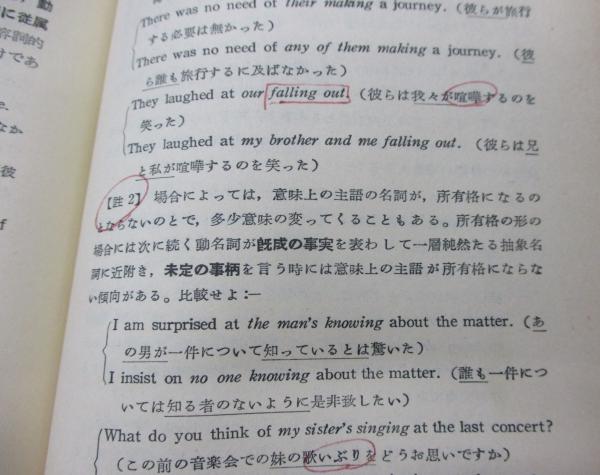 動
に従属
容詞的
けであ
e.
なか
彼
f
There was no need of their making a journey. (彼らが旅行
する必要は無かった)
There was no need of any of them making a journey. (彼
ら誰も旅行するに及ばなかった)
They laughed at our falling out. (彼らは我々が喧嘩するのを
笑った)
They laughed at my brother and me falling out. (彼らは兄
と私が喧嘩するのを笑った)
【註2】 場合によっては，意味上の主語の名詞が，所有格になるの
とならないのとで，多少意味の変ってくることもある。所有格の形の
場合には次に続く動名詞が既成の事実を表わして一層純然たる抽象名
詞に近附き，未定の事柄を言う時には意味上の主語が所有格にならな
い傾向がある。比較せよ:—
I am surprised at the man's knowing about the matter. (あ
の男が一件について知っているとは驚いた)
I insist on no one knowing about the matter. (誰も一件につ
いては知る者のないように是非致したい)
What do you think of my sister's singing at the last concert?
(この前の音楽会での妹の歌いぶりをどうお思いですか)